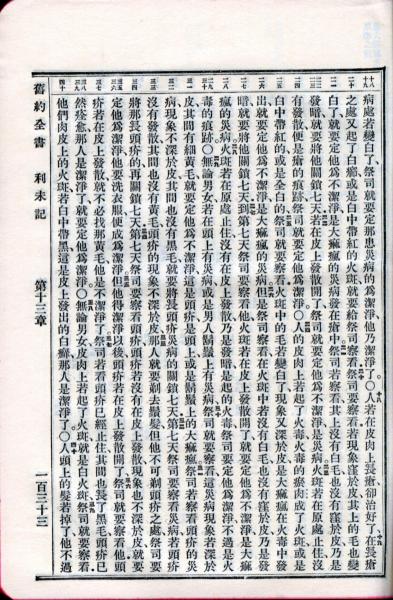 病處若變白了祭司就要定那患災病的爲潔淨他乃潔淨了〇人若在皮肉上長瘡卻治好了在長瘡
之處又起了白癤或是白中帶紅的火斑就要給祭司察看祭司要察看若現象窪於皮其上的毛也變
白了就要定他爲不潔淨是大痲瘋的災病發在瘡中祭司若察看其上沒有白毛也沒有窪於皮乃是
發暗就要將他關鎖七天若在皮上發散開了祭司就要定他爲不潔淨是災病火斑若在原處止住沒
有發散便是瘡的痕跡祭司就要定他爲潔淨〇人的皮肉上若起了火毒火毒的瘀肉成了火斑或是
白中帶紅的或是全白的祭司就要察看火斑中的毛若變白了現象又深於皮是大痲瘋在火毒中發
出就要定他爲不潔淨是大痲瘋的災病但是祭司察看在火斑中若沒有白毛也沒有窪於皮乃是發
暗就要將他關鎖七天到第七天祭司要察看他火斑若在皮上發散開了就要定他爲不潔淨是大痲
瘋的災病火斑若在原處止住沒有在皮上發散乃是發暗是起的火毒祭司要定他爲潔淨不過是火
毒的痕跡〇無論男女若在頭上有災病或是男人鬍鬚上有災病祭司就要察看這災病現象若深於
皮其間有細黃毛就要定他爲不潔淨這是頭疥是頭上或是鬍鬚上的大痲瘋祭司若察看頭疥的災
病現象不深於皮其間也沒有黑毛就要將長頭疥災病的關鎖七天第七天祭司要察看災病若頭疥
沒有發散其間也沒有黃毛頭疥的現象不深於皮那人就要剃去鬚髮但他不可剃頭疥之處祭司要
將那長頭疥的再關鎖七天第七天祭司要察看頭疥頭疥若沒有在皮上發散現象也不深於皮就要
定他爲潔淨他要洗衣服便成爲潔淨但他得潔淨以後頭疥若在皮上發散開了祭司就要察看他頭
疥若在皮上發散就不必找那黃毛他是不潔淨了祭司若看頭疥已經止住其間也長了黑毛頭疥已
然痊愈那人是潔淨了就要定他爲潔淨〇無論男女皮肉上若起了火斑就是白火斑祭司就要察看
他們肉皮上的火斑若白中帶黑這是皮上發出的白癬那人是潔淨了〇人頭上的髮若掉了他不過
舊約全書 利未記 第十三章 一百三十三